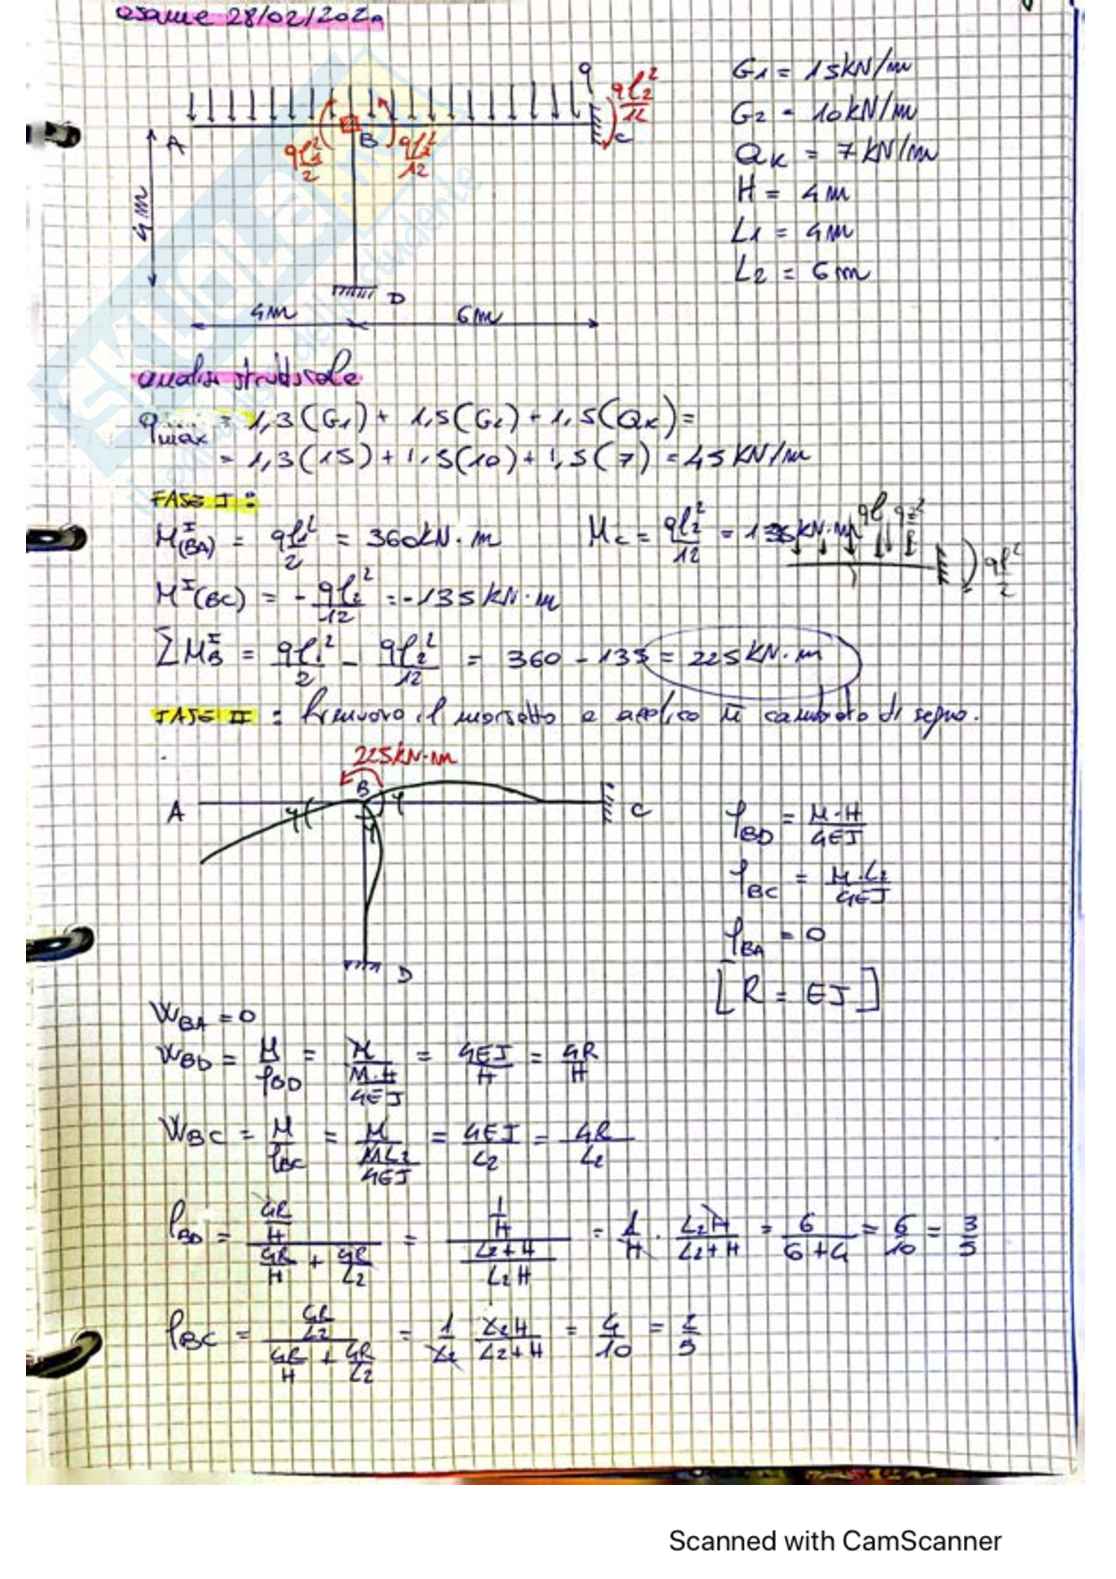 esame 28/02/202
q
ql₂²/12
A
B
C
ql₁²/2
ql₂²/12
4m
D
4m
6m
G1 = 15 kN/m
G2 = 10 kN/m
Qk = 7 kN/m
H = 4m
L1 = 4m
L2 = 6m
SKUOLA
analisi strutturale
qmax = 1,3(G1) + 1,5(G2) + 1,5(Qk) =
= 1,3(15) + 1,5(10) + 1,5(7) = 45 KN/m
FASE I :
M^I(BA) = ql₁²/2 = 360 KN·m
Mc = ql₂²/12 = 135 KN·m
ql
ql²/2
M^I(BC) = -ql₂²/12 = -135 KN·m
ΣM^I_B = ql₁²/2 - ql₂²/12 = 360 - 135 = 225 KN·m
FASE II : rimuovo il morsetto e applico M cambiato di segno.
225KN·m
A
B
C
φ
φ
φ
D
φBD = M·H/4EJ
φBC = M·L2/4EJ
φBA = 0
[R = EJ]
WBA = 0
WBD = M/φBD = M/(M·H/4EJ) = 4EJ/H = 4R/H
WBC = M/φBC = M/(ML2/4EJ) = 4EJ/L2 = 4R/L2
ρBD = (4R/H)/(4R/H + 4R/L2) = (1/H)/((L2+H)/(L2H)) = 1/H · L2H/(L2+H) = 6/(6+4) = 6/10 = 3/5
ρBC = (4R/L2)/(4R/H + 4R/L2) = 1/L2 L2H/(L2+H) = 4/10 = 2/5
Scanned with CamScanner